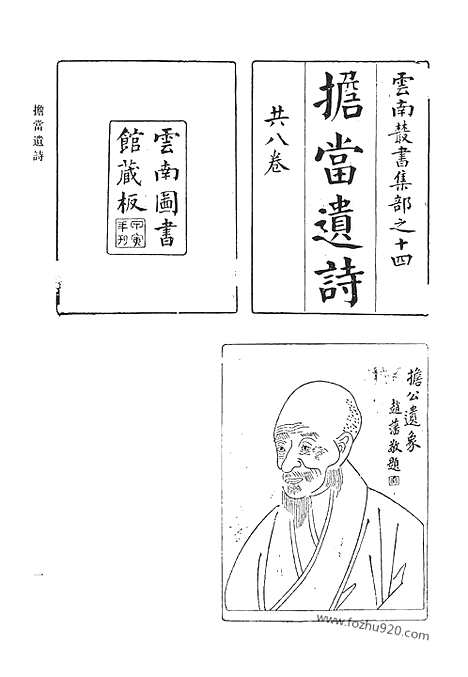 雲南叢書集部之十四
擔當遺詩
共八卷
雲南圖書
館藏板
甲寅
年刊
擔當遺詩
擔公遺象
趙藩敬題
一
www.fozhu920.com